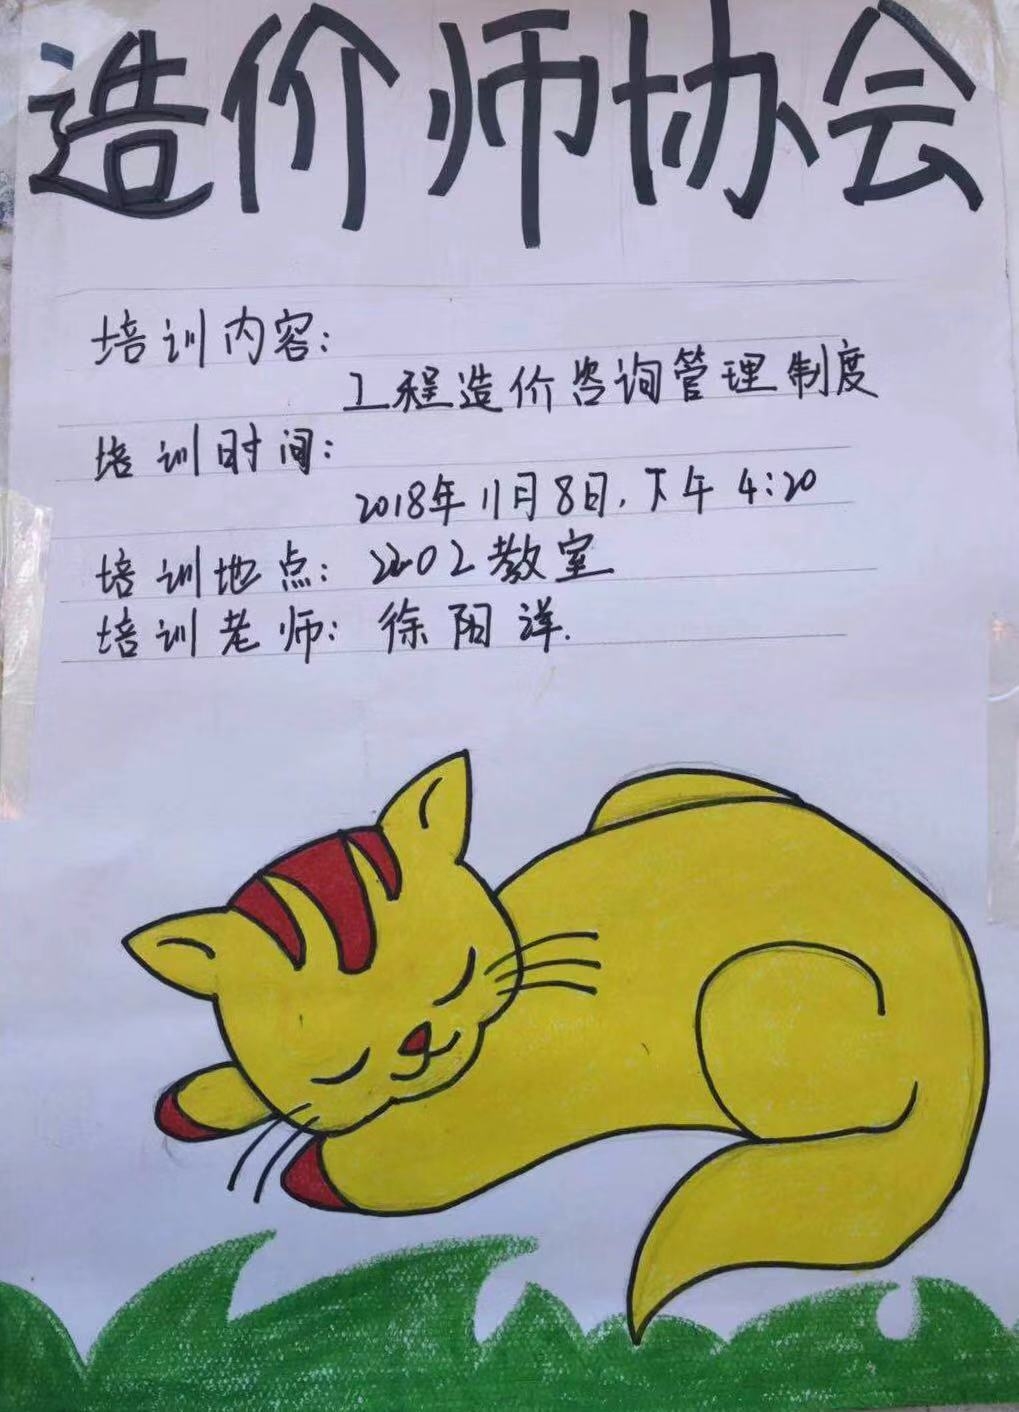 造价师协会
培训内容:
工程造价咨询管理制度
培训时间:
2018年11月8日,下午4:20
培训地点: 2202教室
培训老师: 徐阳洋.